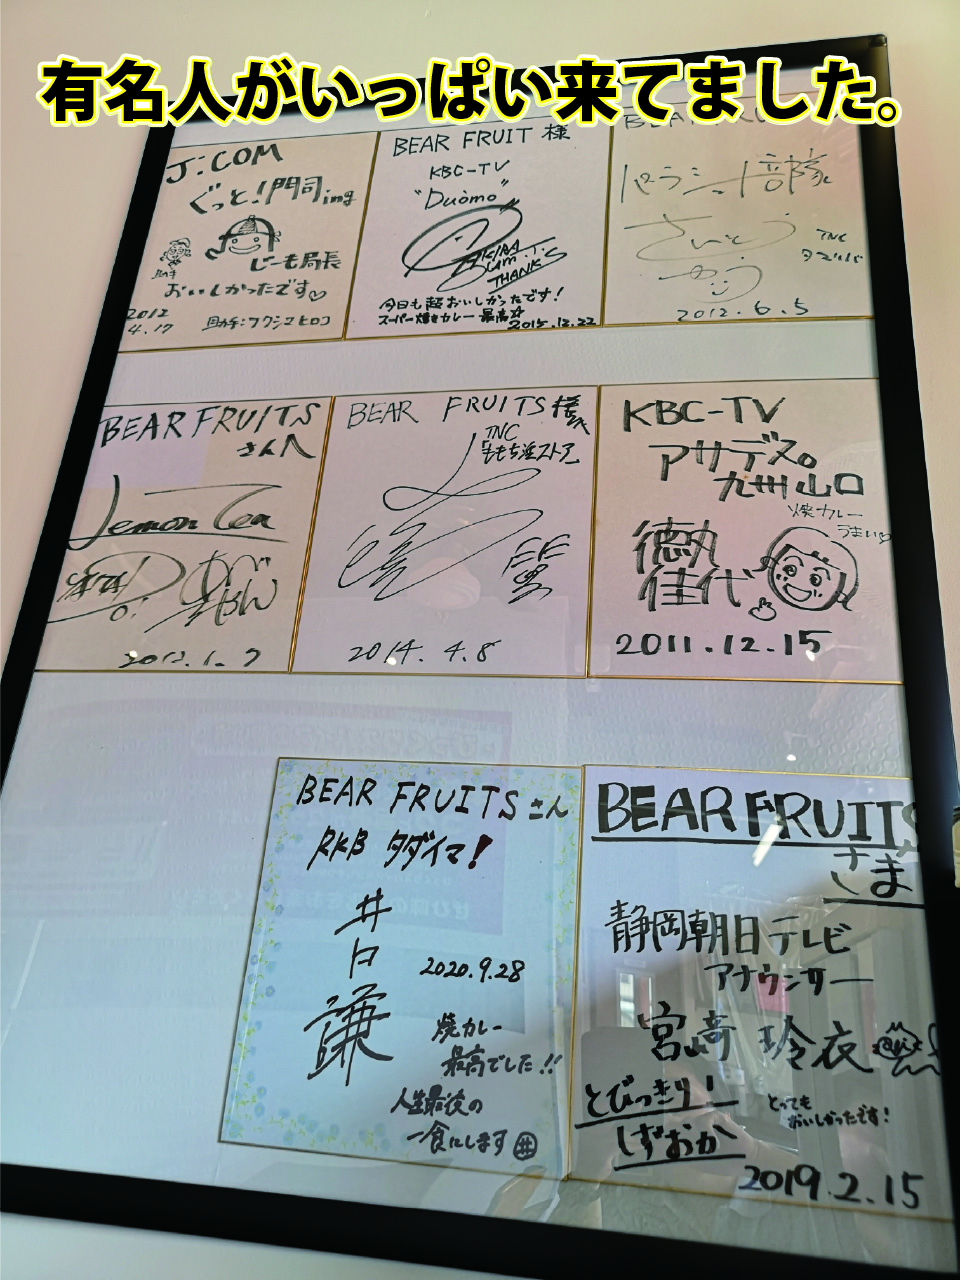 有名人がいっぱい来てました。
J:COM
ぐっと!門司ing
じーも局長
おいしかったです♡
2012
4.17
BEAR FRUIT 様
KBC-TV
"Duomo"
THANK'S
今日も超おいしかったです!
スーパー焼きカレー最高☆
2015.12.22
パラシュート部隊
さいとう
TNC
2012.6.5
BEAR FRUITS
さんへ
Lemon Tea
2012.1.7
BEAR FRUITS様
TNC
ももち浜ストア
2014.4.8
KBC-TV
アサデス。
九州山口
焼カレー
うまい♡
徳丸
佳代
2011.12.15
BEAR FRUITSさん
RKB タダイマ!
井口
謙
2020.9.28
焼カレー
最高でした!!
人生最後の
一食にします 井
BEAR FRUITS
さま
静岡朝日テレビ
アナウンサー
宮﨑 玲衣
とびっきり!
しずおか
とっても
おいしかったです!
2019.2.15